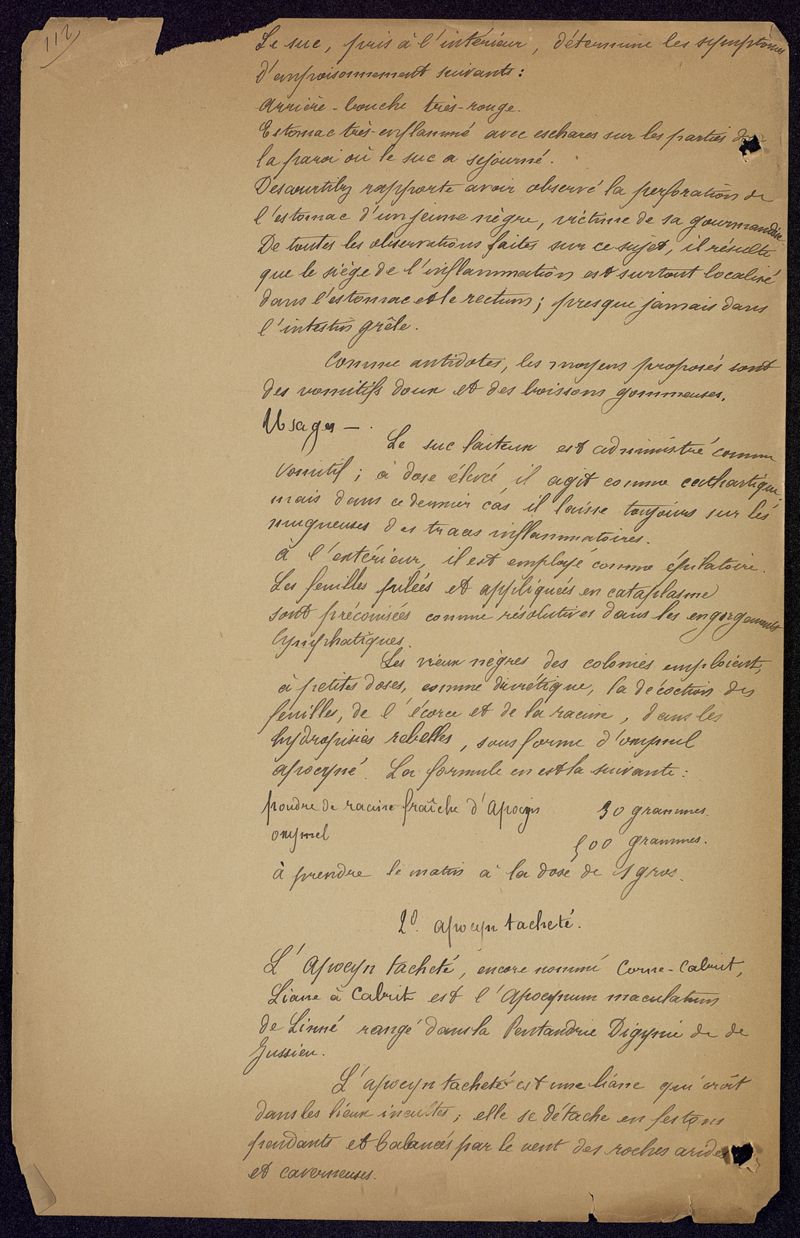 112
Le suc, pris à l'intérieur, détermine les symptômes
d'empoisonnement suivants:
Arrière-bouche très-rouge.
Estomac très-enflammé avec eschares sur les parties de
la paroi où le suc a séjourné.
Descourtilz rapporte avoir observé la perforation de
l'estomac d'un jeune nègre, victime de sa gourmandise
De toutes les observations faites sur ce sujet, il résulte
que le siège de l'inflammation est surtout localisé
dans l'estomac et le rectum; presque jamais dans
l'intestin grêle.
Comme antidotes, les moyens proposés sont
des vomitifs doux et des boissons gommeuses.
Usages —.
Le suc laiteux est administré comme
vomitif; à dose élevée il agit comme cathartique
mais dans ce dernier cas il laisse toujours sur les
muqueuses des traces inflammatoires.
à l'extérieur, il est employé comme épilatoire.
Les feuilles pilées et appliquées en cataplasme
sont préconisées comme résolutives dans les engorgements
lymphatiques.
Les vieux nègres des colonies emploient,
à petites doses, comme diurétique, la décoction des
feuilles, de l'écorce et de la racine, dans les
hydropisies rebelles, sous forme d'oxymel
apocyné. La formule en est la suivante:
poudre de racine fraîche d'Apocyn 30 grammes.
oxymel 500 grammes.
à prendre le matin à la dose de 1 gros.
2º. Apocyn tacheté.
L'Apocyn tacheté, encore nommé Corne-Cabrit,
Liane à Cabrit est l'Apocynum maculatum
de Linné rangé dans la Pentandrie Digynie de de
Jussieu.
L'Apocyn tacheté est une liane qui croît
dans les lieux incultes; elle se détache en festons
pendants et balancés par le vent des roches arides
et caverneuses.